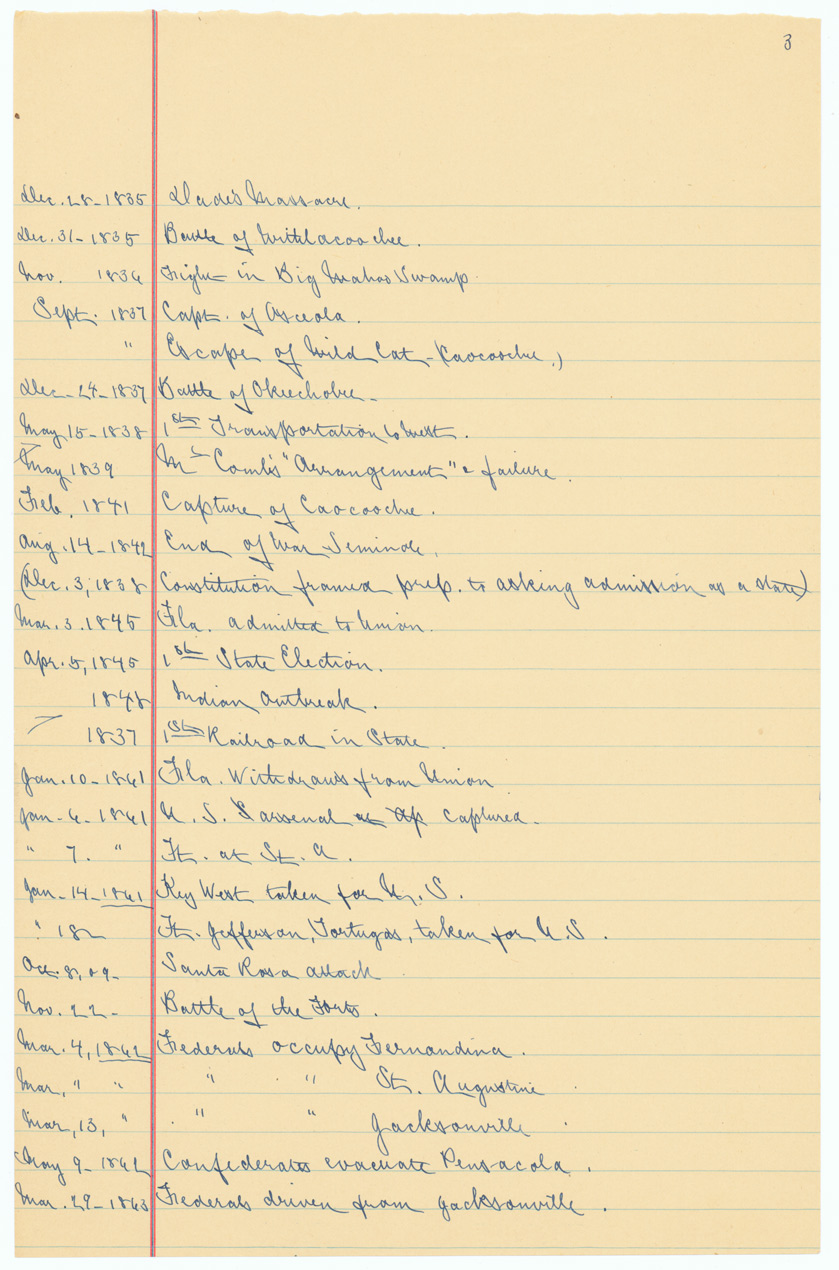 3
Dec. 28-1835 Dade's Massacre.
Dec. 31-1835 Battle of Withlacoochee.
Nov. 1836 Fight in Big Wahoo Swamp
Sept. 1837 Capt. of Osceola.
" Escape of Wild Cat-(Caocoochee.)
Dec-24-1837 Battle of Okeechobee-
May 15-1838 1st Transportation to West.
May 1839 Mc Comb's "Arrangement" & failure.
Feb. 1841 Capture of Caocoochee.
Aug. 14-1842 End of War Seminole.
(Dec. 3, 1838 Constitution framed prep. to asking admission as a state)
Mar. 3. 1845 Fla. admitted to Union.
Apr. 5, 1845 1st State Election.
1848 Indian Outbreak.
1837 1st Railroad in State.
Jan. 10-1861 Fla. Withdraws from Union
Jan-6-1861 U.S. arsenal at Ap captured.
" 7. " Ft. at St. A.
Jan-14-1861 Key West taken for U.S.
" 18 Ft. Jefferson, Tortugas, taken for U.S.
Oct. 8, 09- Santa Rosa attack
Nov. 22- Battle of the Forts.
Mar. 4, 1862 Federals occupy Fernandina.
Mar, " " " " St. Augustine
Mar, 13, " " " Jacksonville
May 9-1862 Confederates evacuate Pensacola.
Mar. 29-1863 Federals driven from Jacksonville.